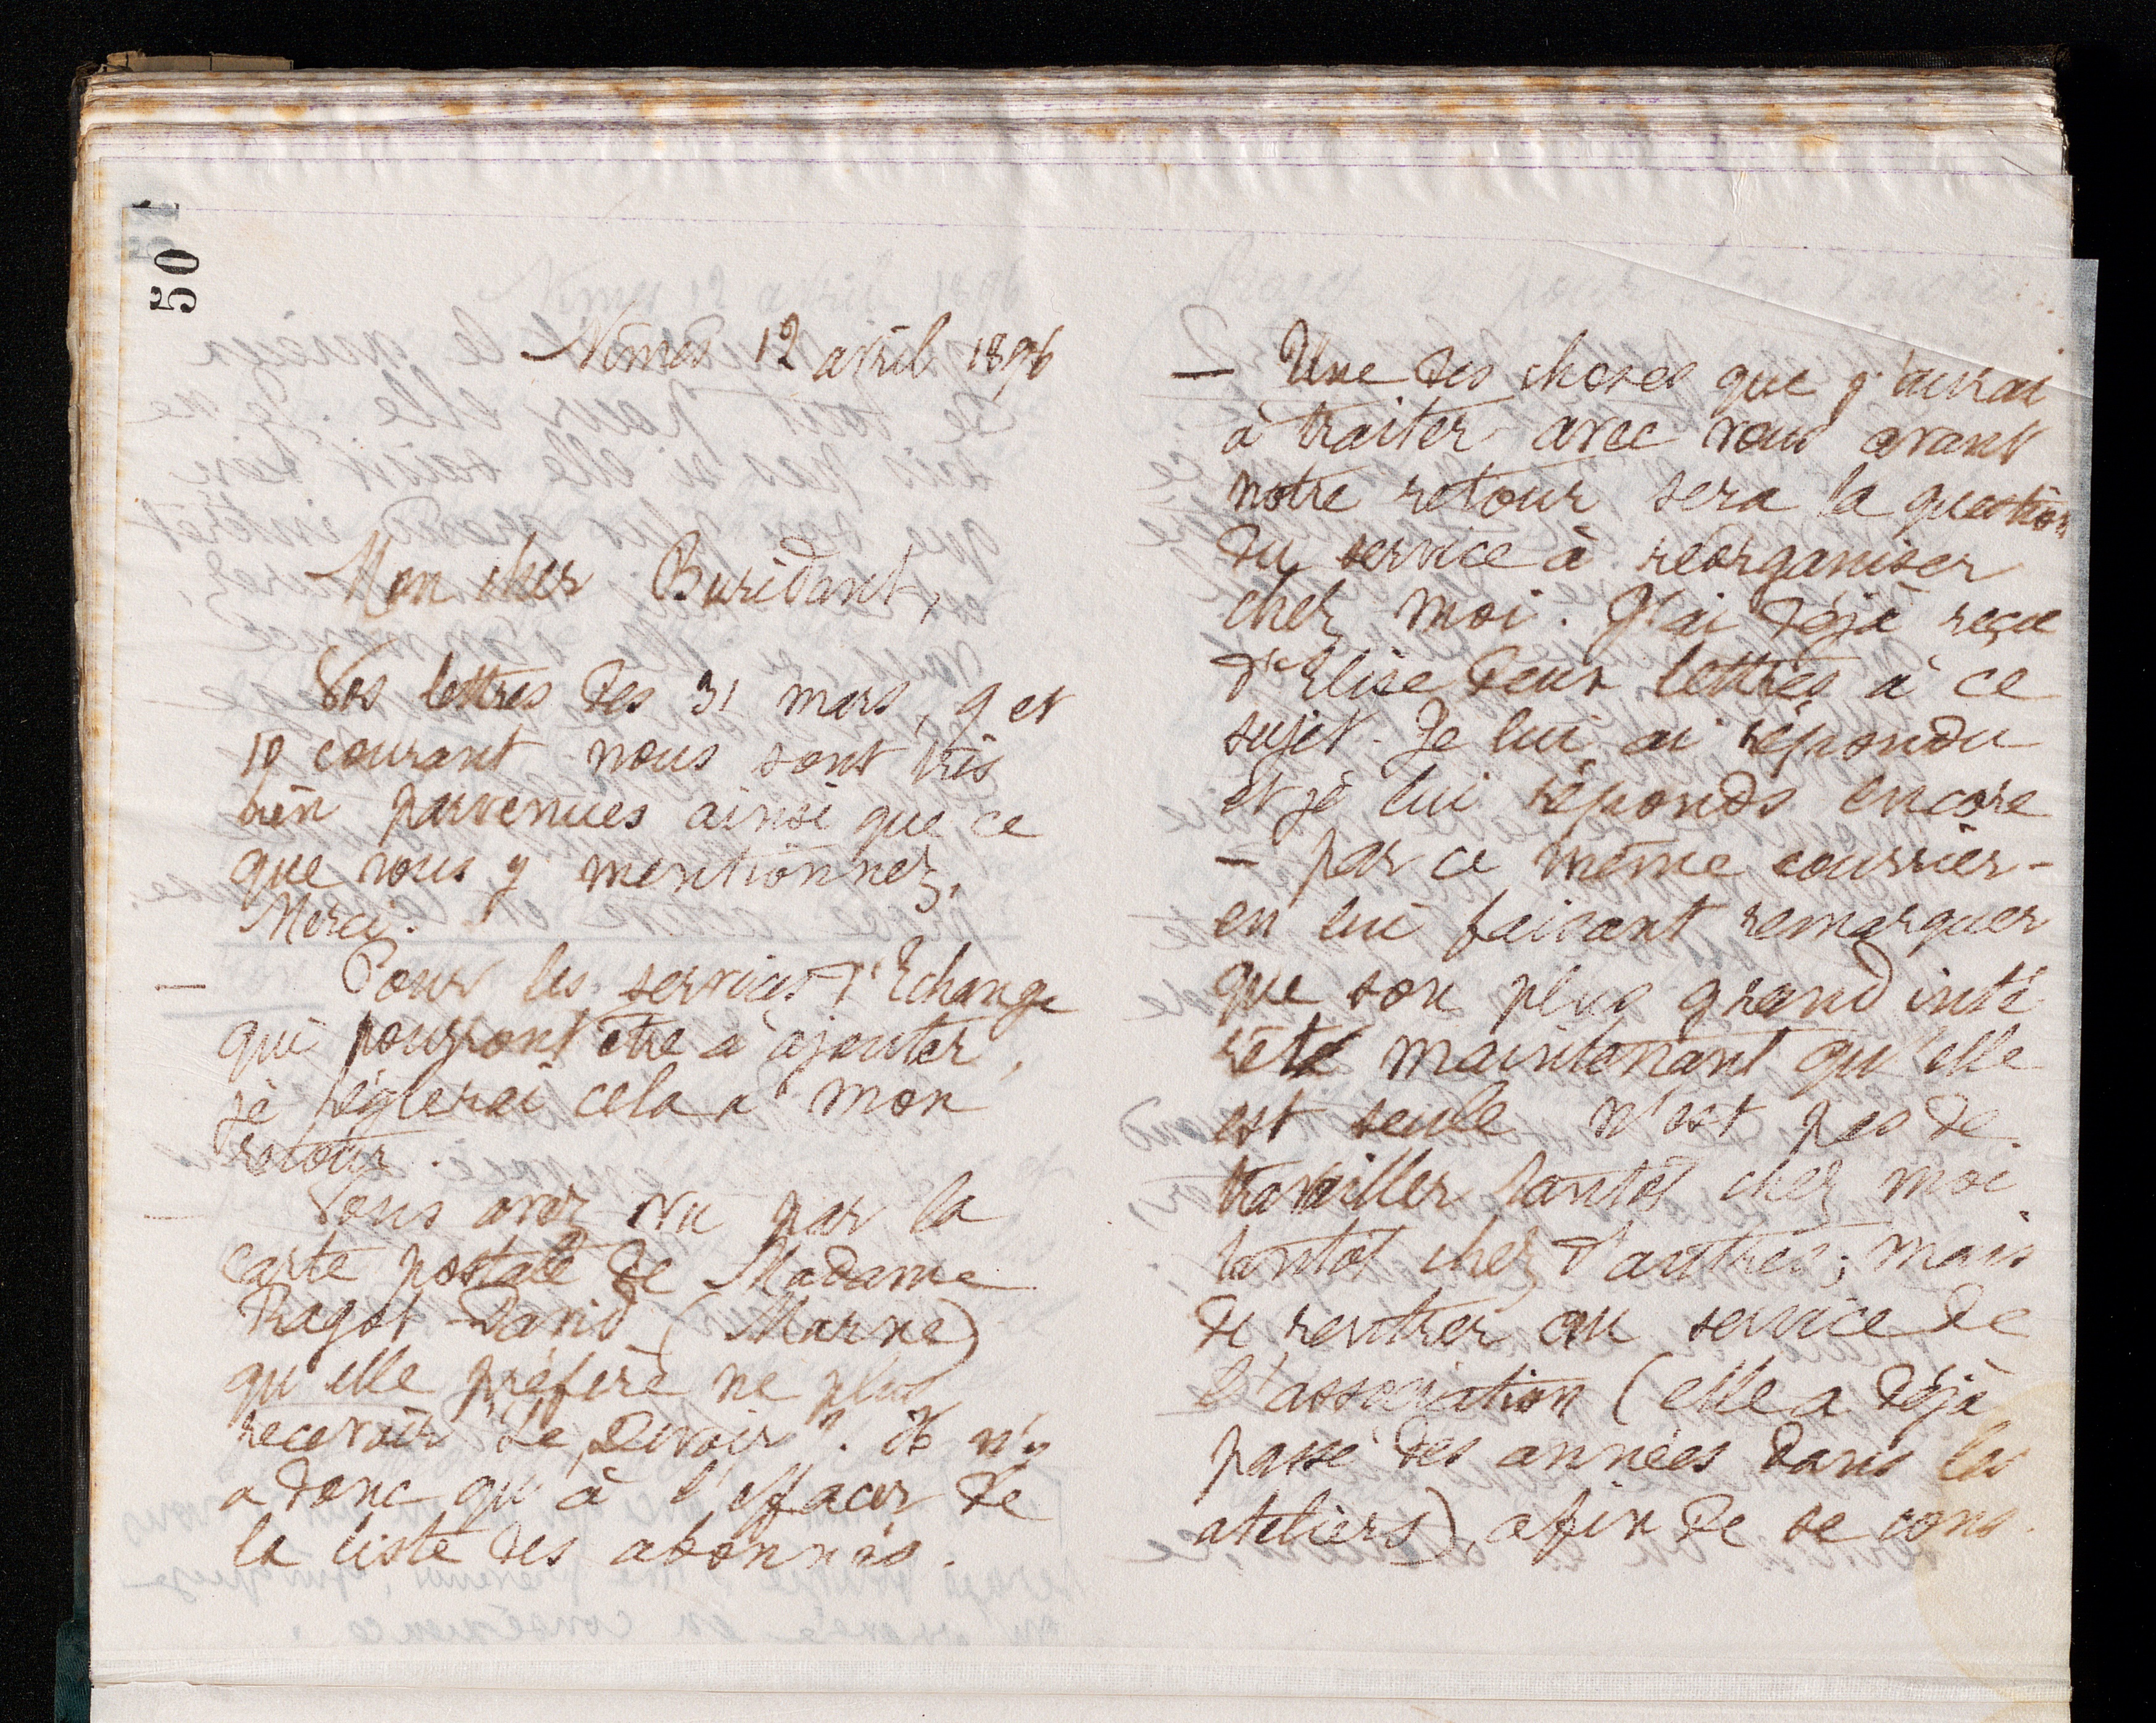 50
Nîmes 12 avril 1896
Mon cher Buridant,
Vos lettres des 31 mars, 9 et
10 courant nous sont très
bien parvenues ainsi que ce
que vous y mentionnez.
Merci.
— Pour les services d'Echange
qui pourront être à ajouter,
je règlerai cela à mon
retour.
— Vous avez vu par la
carte postale de Madame
Ragot-David (Marne)
qu'elle préfère ne plus
recevoir "Le Devoir". Il n'y
a donc qu'à l'effacer de
la liste des abonnés.
— Une des choses que j'aurai
à traiter avec vous avant
notre retour sera la question
du service à réorganiser
chez moi. J'ai déjà reçu
d'Elise deux lettres à ce
sujet. Je lui ai répondu
et je lui réponds encore
— par ce même courrier —
en lui faisant remarquer
que son plus grand inté
rêt maintenant qu'elle
est seule n'est pas de
travailler tantôt chez moi
tantôt chez d'autres; mais
de rentrer au service de
l'association (elle a déjà
passé des années dans les
ateliers), afin de se cons